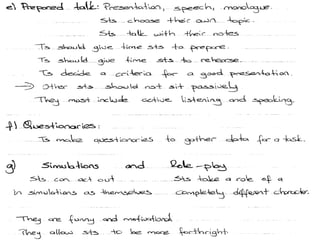 e) Prepared talk: Presentation, speech, monologue.
Sts choose their own topic.
Sts talk with their notes
Ts should give time sts to prepare.
Ts should give time sts to rehearse.
Ts decide a criteria for a good presentation.
→ Other sts should not sit passively
They must include active listening and speaking.
f) Questionaries:
Ts make questionaries to gather data for a task.
g) Simulations and Role-play
Sts can act out Sts take a role of a
in simulations as themselves completely different character.
They are funny and motivational
They allow sts to be more forthright